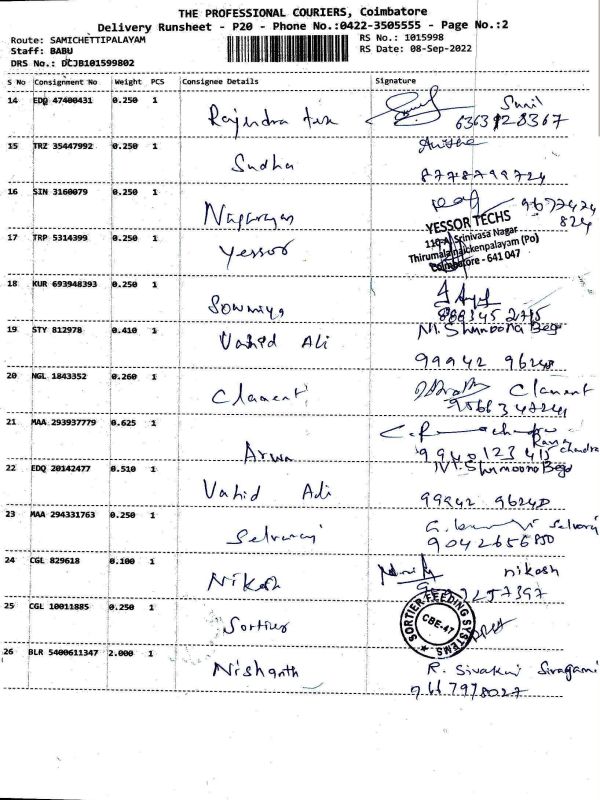 THE PROFESSIONAL COURIERS, Coimbatore
Delivery Runsheet - P20 - Phone No.:0422-3505555 - Page No.:2
Route: SAMICHETTIPALAYAM
RS No.: 1015998
Staff: BABU
RS Date: 08-Sep-2022
DRS No.: DCJB101599802
S No Consignment No Weight PCS Consignee Details Signature
14 EDQ 47400431 0.250 1 Rajendra Sunil
15 TRZ 35447992 0.250 1 Sudha
8778799724
16 SIN 3160079 0.250 1 Nagarajan
824
17 TRP 5314399 0.250 1 Yessor
YESSOR TECHS
110-A, Srinivasa Nagar
Thirumalainaickenpalayam (Po)
Coimbatore - 641 047
18 KUR 693948393 0.250 1 Sowmiya
19 STY 812978 0.410 1 Vahid Ali
99942 96240
20 NGL 1843352 0.260 1 Clament Clament
21 MAA 293937779 0.625 1 Arwa
22 EDQ 20142477 0.510 1 Vahid Ali
99942 96240
23 MAA 294331763 0.250 1 Selvaraj Selvaraj
24 CGL 829618 0.100 1 Nikash nikash
25 CGL 10011885 0.250 1 Sortier
SORTIER FEEDING SYSTEMS
CBE-47
26 BLR 5400611347 2.000 1 Nishanth R. Sivakami Sivagami
9667978027